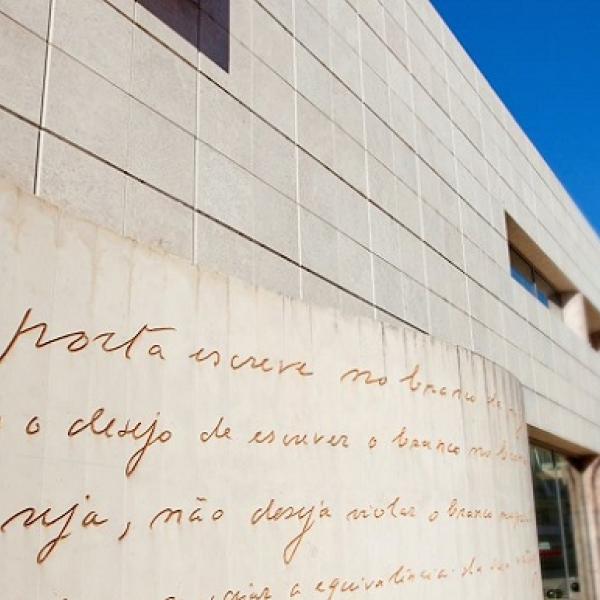 porta escreve no branco da
o desejo de escrever o branco no bran
reja, não deseja violar o branco
criar a equivalência da sua